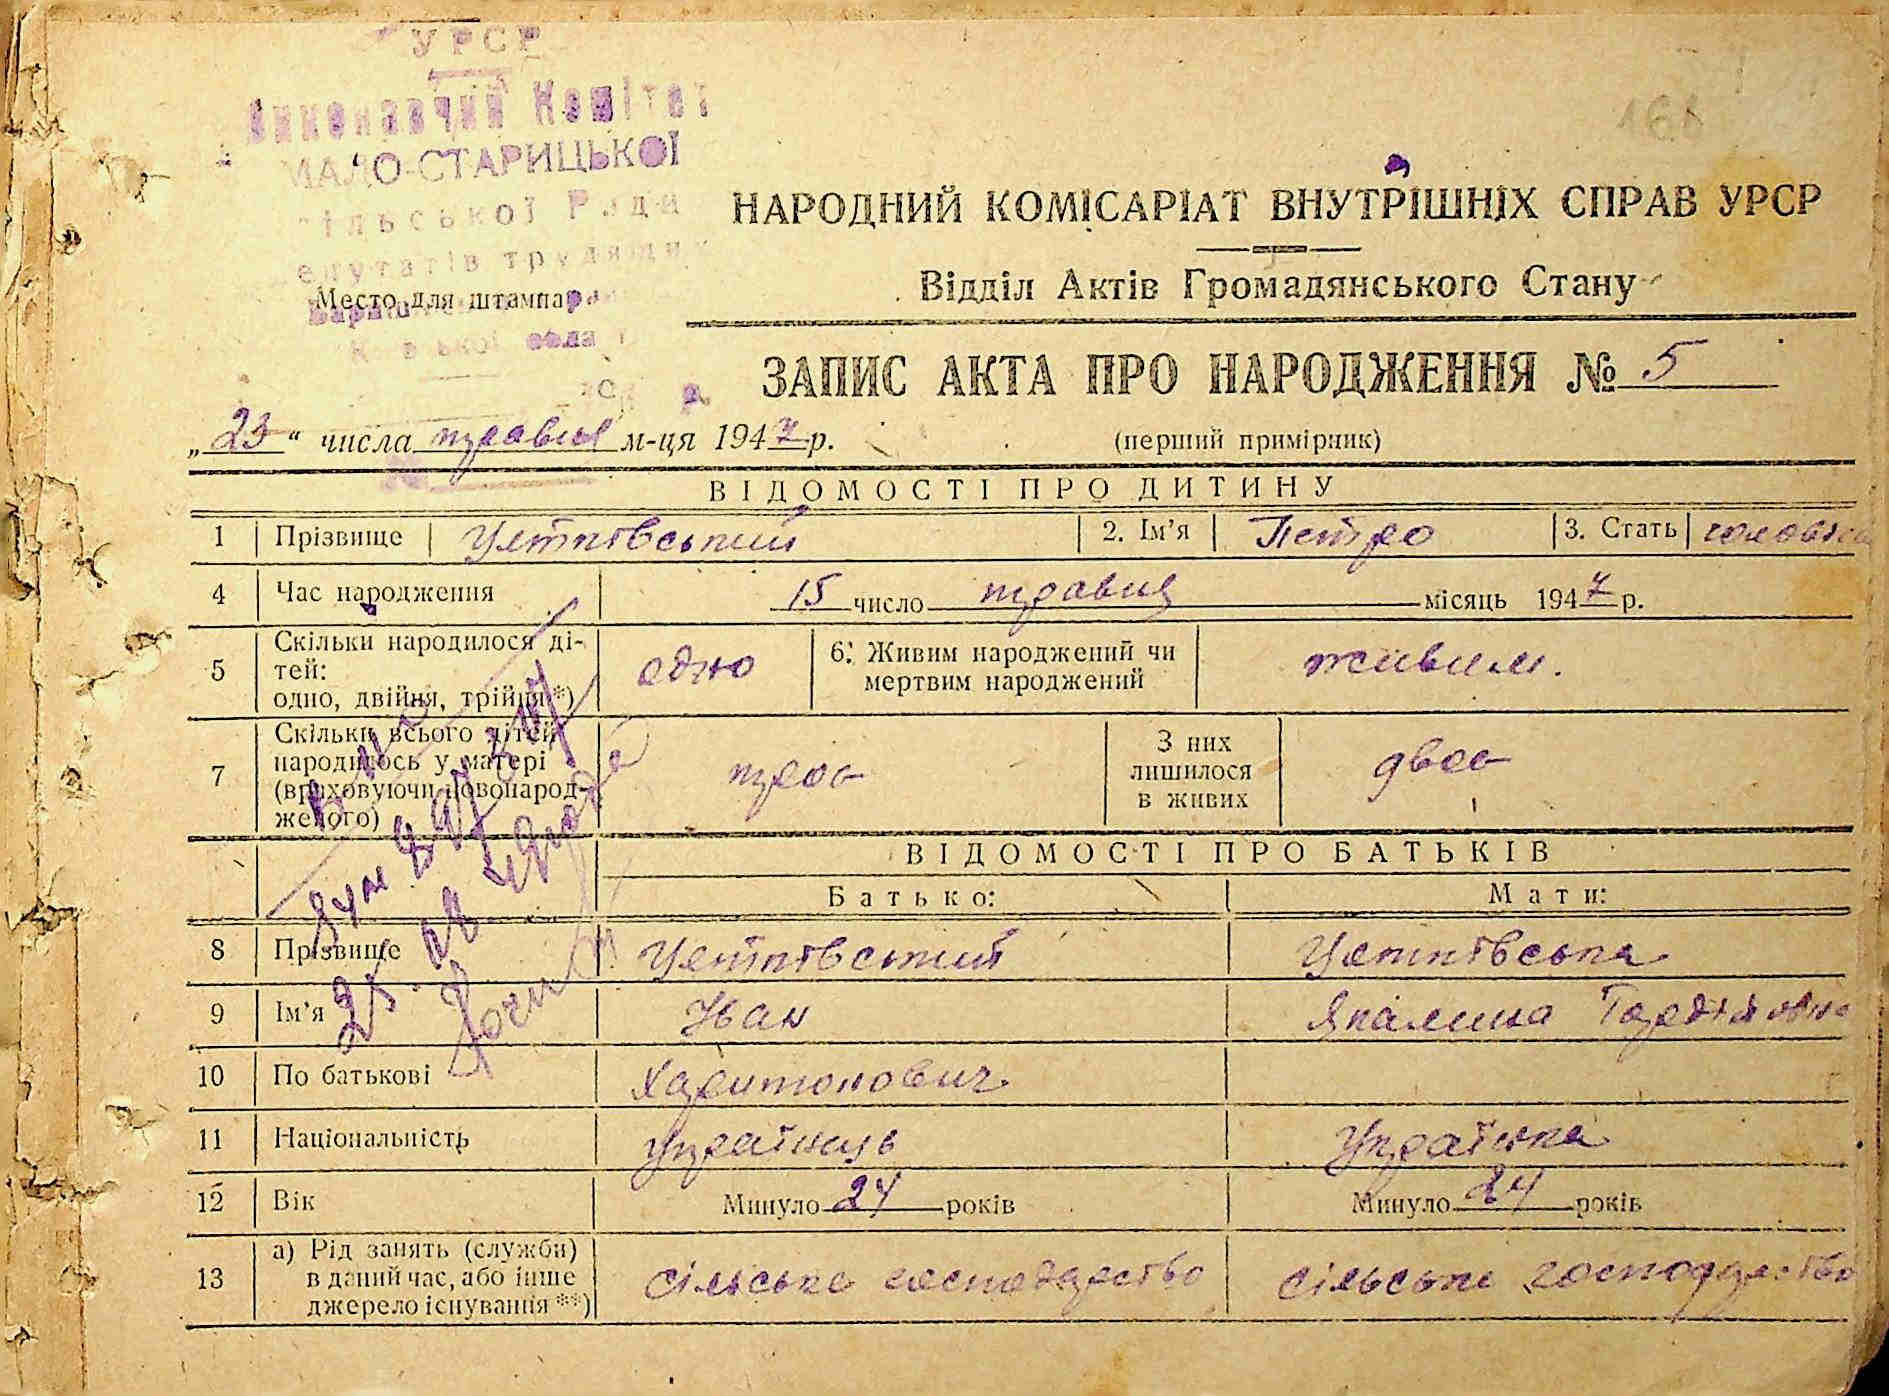 УРСР
Виконавчий Комітет
МАЛО-СТАРИЦЬКОЇ
сільської Ради
депутатів трудящих
Место для штампа
НАРОДНИЙ КОМІСАРІАТ ВНУТРІШНІХ СПРАВ УРСР
Відділ Актів Громадянського Стану
ЗАПИС АКТА ПРО НАРОДЖЕННЯ № 5
„23“ числа травня м-ця 1947 р.
(перший примірник)
ВІДОМОСТІ ПРО ДИТИНУ
1 Прізвище 2. Ім’я Петро 3. Стать
4 Час народження 15 число травня місяць 1947 р.
5 Скільки народилося ді-
тей:
одно, двійня, трійня*) одно 6. Живим народжений чи
мертвим народжений живим.
7 Скільки всього дітей
народилось у матері
(враховуючи новонарод-
женого) троє З них
лишилося
в живих двоє
ВІДОМОСТІ ПРО БАТЬКІВ
Батько: Мати:
8 Прізвище
9 Ім’я Іван
10 По батькові Харитонович
11 Національність Українець Українка
12 Вік Минуло 24 років Минуло 24 років
13 а) Рід занять (служби)
в даний час, або інше
джерело існування **) сільське господарство сільське господарство